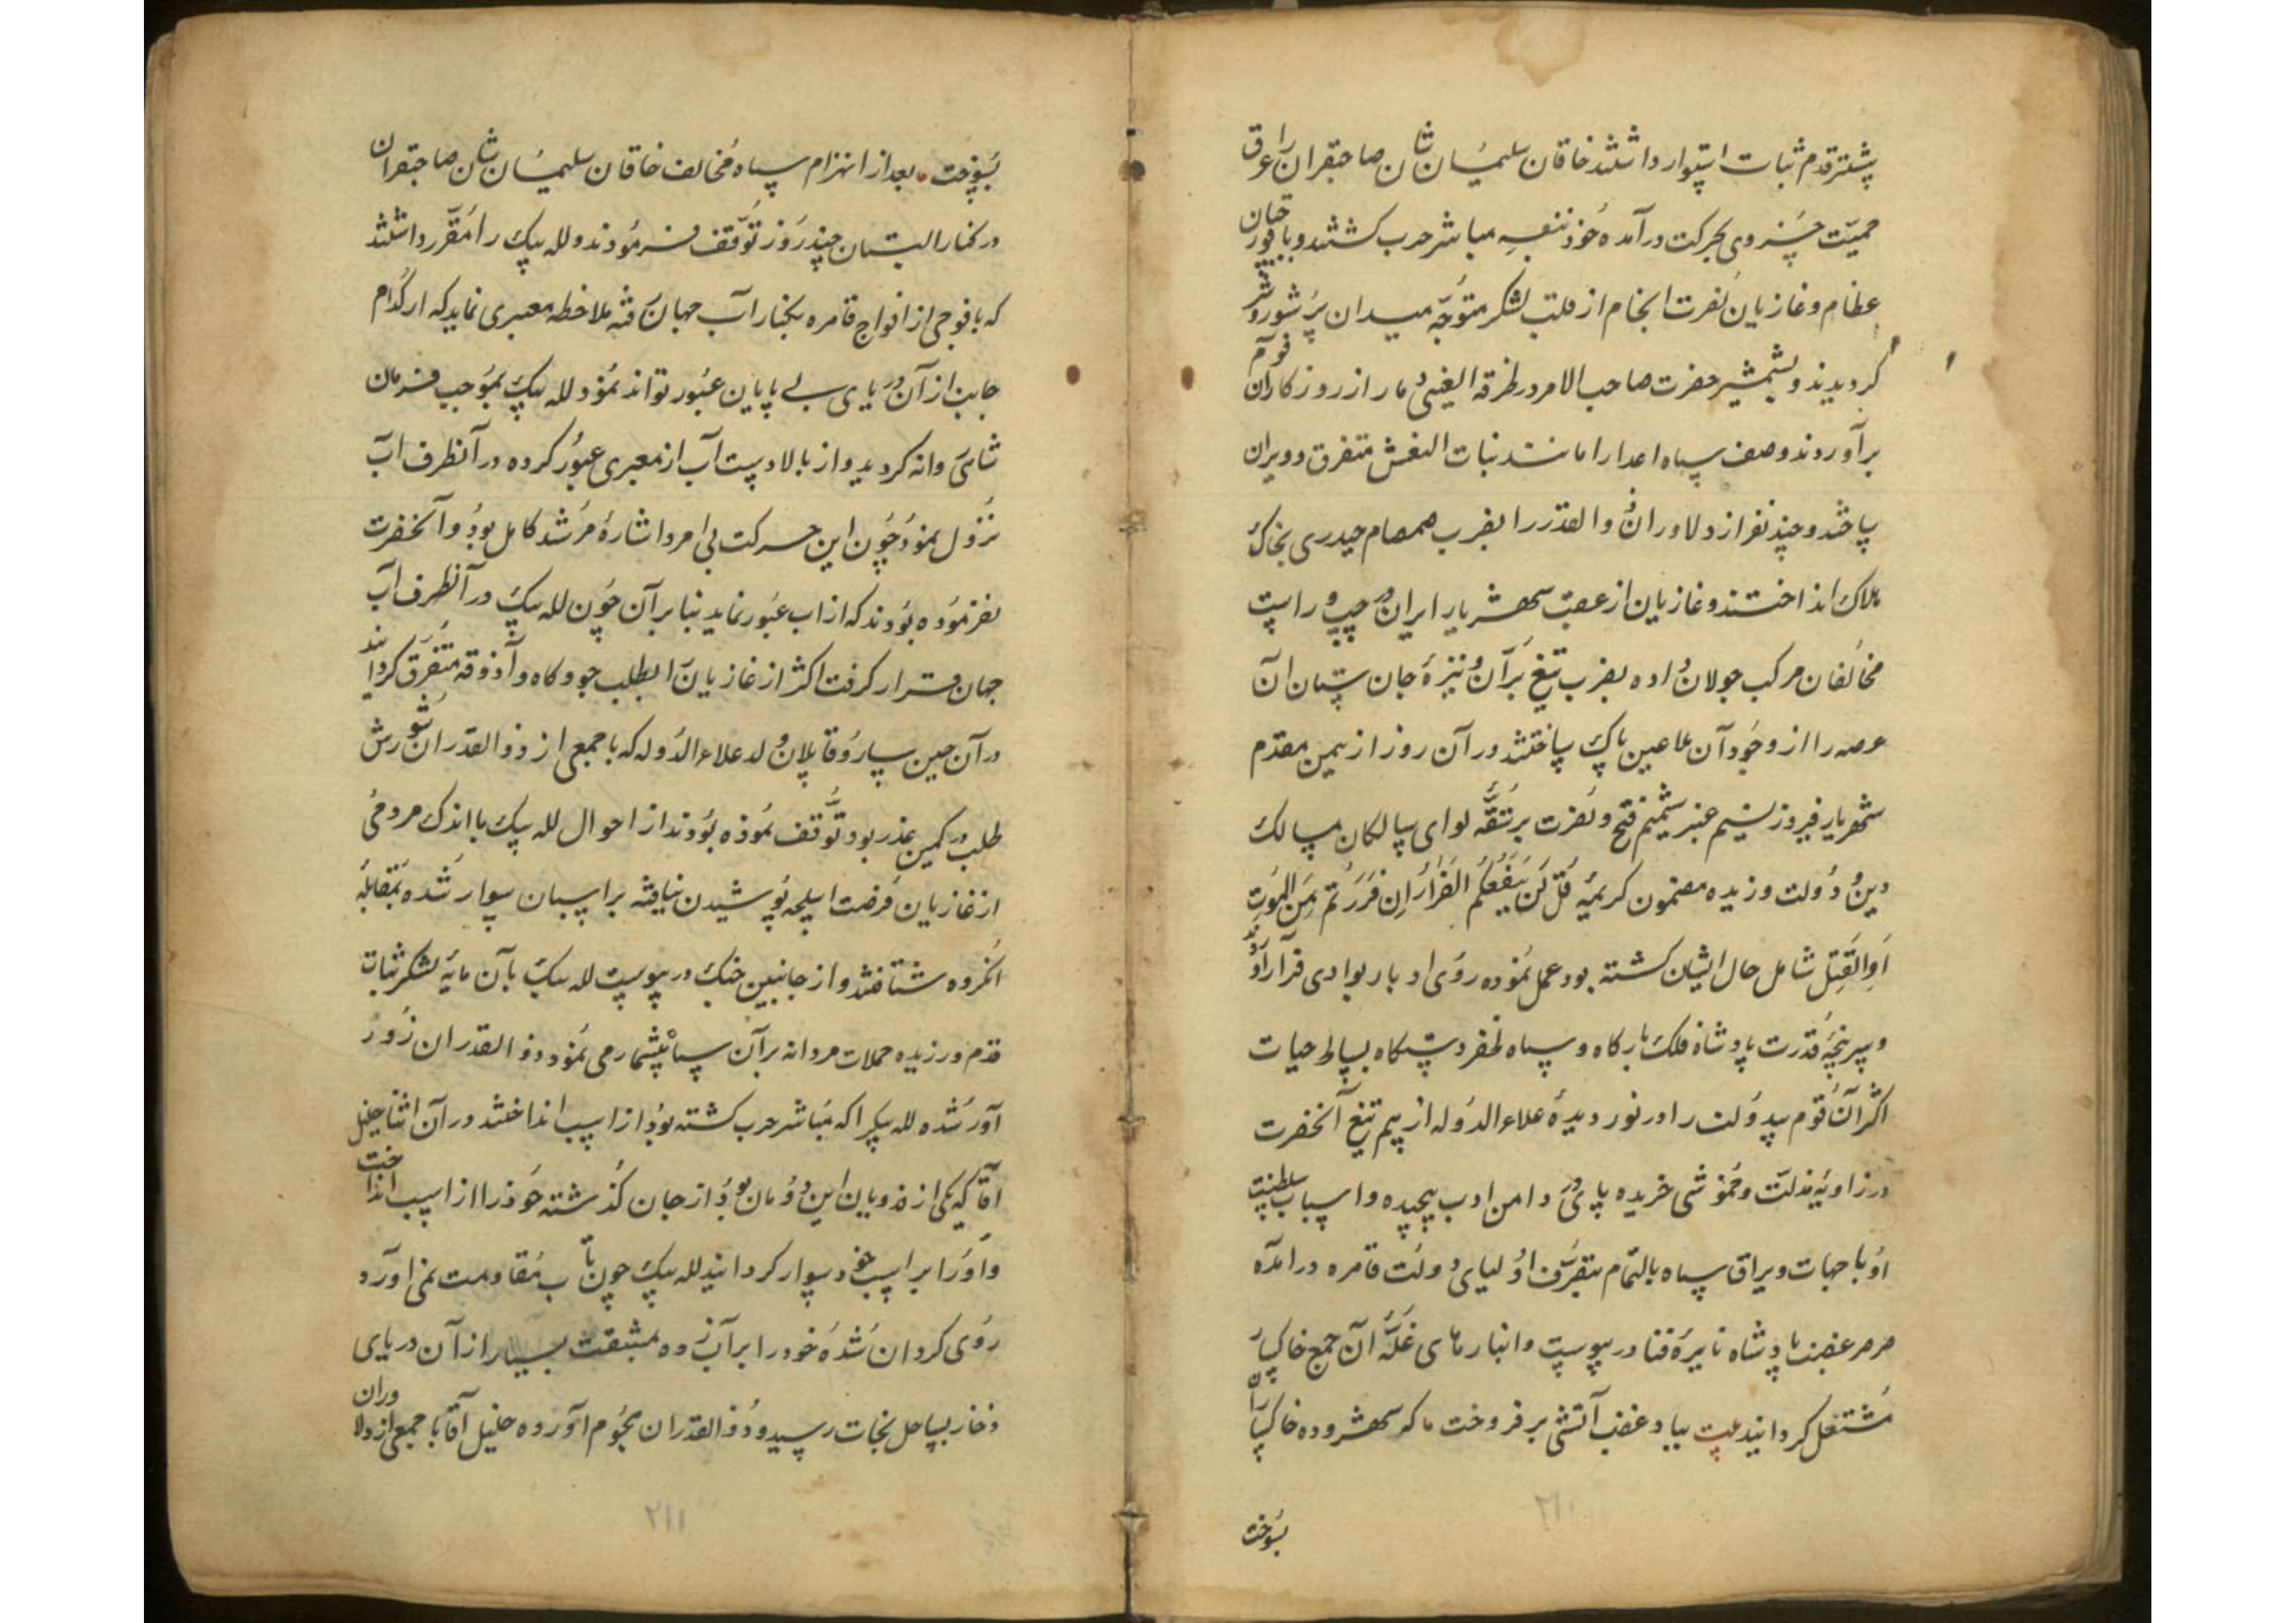 پیشتر قدم ثبات استوار داشتند خاقان سلیمان شان صاحبقران را عرق
حمیّت خسروی بحرکت درآمده خود بنفسه مباشر حرب کشتند و با قورچیان
عظام و غازیان نصرت انجام از قلب لشکر متوجّه میدان پر شور و شر
کردیدند و بشمشیر حضرت صاحب الامر در طرفة العینی دمار از روزکار آن قوم
برآوردند و صف سپاه اعدا را مانند بنات النعش متفرق و ویران
ساختند و چند نفر از دلاوران ذوالقدر را بضرب صمصام حیدری بخاک
هلاک انداختند و غازیان از عقب شهریار ایران در چپ و راست
مخالفان مرکب جولان داده بضرب تیغ برّان و نیزهٔ جان ستان آن
عرصه را از وجود آن ملاعین پاک ساختند در آن روز از یمن مقدم
شهریار فیروز نسیم عنبر شمیم فتح و نصرت بر شقّه لوای سالکان مسالک
دین و دولت وزیده مضمون کریمهٔ قُل لَن یَنفَعَکُم الفَرارُ اِن فَرَرتُم مِنَ المَوتِ
اَوِ القَتلِ شامل حال ایشان کشته بود عمل نموده روی ادبار بوادی فرار آوردند
و سرپنجهٔ قدرت پادشاه فلک بارکاه و سپاه ظفر دستکاه بساط حیات
اکثر آن قوم بیدولت را در نوردیده علاء الدوله از بیم تیغ آنحضرت
در زاویهٔ مذلّت و خموشی خزیده پای در دامن ادب پیچیده و اسباب سلطنت
او با جهات و یراق سپاه بالتمام بتصرّف اولیای دولت قاهره درآمده
صرصر غضب پادشاه نایرهٔ فنا در پیوست و انبارهای غلّهٔ آن جمع خاکسار
مشتعل کردانید بیت بباد غضب آتشی برفروخت ماکر شهر و ده خاکساران
بسوخت
۲۱۰
بسوخت. بعد از انهزام سپاه مخالف خاقان سلیمان شان صاحبقران
در کنار البستان چند روز توقف فرمودند و لله بیک را مقرّر داشتند
که با فوجی از افواج قاهره بکنار آب جهان رفته ملاحظه معبری نماید که از کدام
جانب از آن دریای بی پایان عبور تواند نمود لله بیک بموجب فرمان
شاهی روانه کردید و از بالا دست آب از معبری عبور کرده در آنطرف آب
نزول نمود چون این حرکت بی امر و اشارهٔ مرشد کامل بود و آنحضرت
نفرموده بودند که از اب عبور نماید بنا برآن چون لله بیک در آنطرف آب
جهان قرار کرفت اکثر از غازیانرا بطلب جو و کاه و آذوقه متفرّق کردانید
در آن حین سارو قاپلان ولد علاء الدوله که با جمعی از ذوالقدران شورش
طلب در کمین غدر بود توقف نموده بودند از احوال لله بیک با اندک مردمی
از غازیان فرصت اسلحه پوشیدن نیافته بر اسبان سوار شده بمقابلهٔ
انکروه شتافتند و از جانبین جنک در پیوست لله بیک بآن مایهٔ لشکر ثبات
قدم ورزیده حملات مردانه برآن سپاه بیشمار می نمود و ذوالقدران زور
آور شده لله بیکرا که مباشر حرب کشته بود از اسب انداختند در آن اثنا خلیل
آقا که یکی از فدویان این دودمان بود از جان گذشته خود را از اسب انداخت
و او را بر اسب خود سوار کردانید لله بیک چون تاب مقاومت نمی آورد
روی کردان شده خود را بر آب زده بمشقت بسیار از آن دریای
ذخار بساحل نجات رسید و ذوالقدران هجوم آورده خلیل آقا با جمعی از دلاوران
۲۱۱